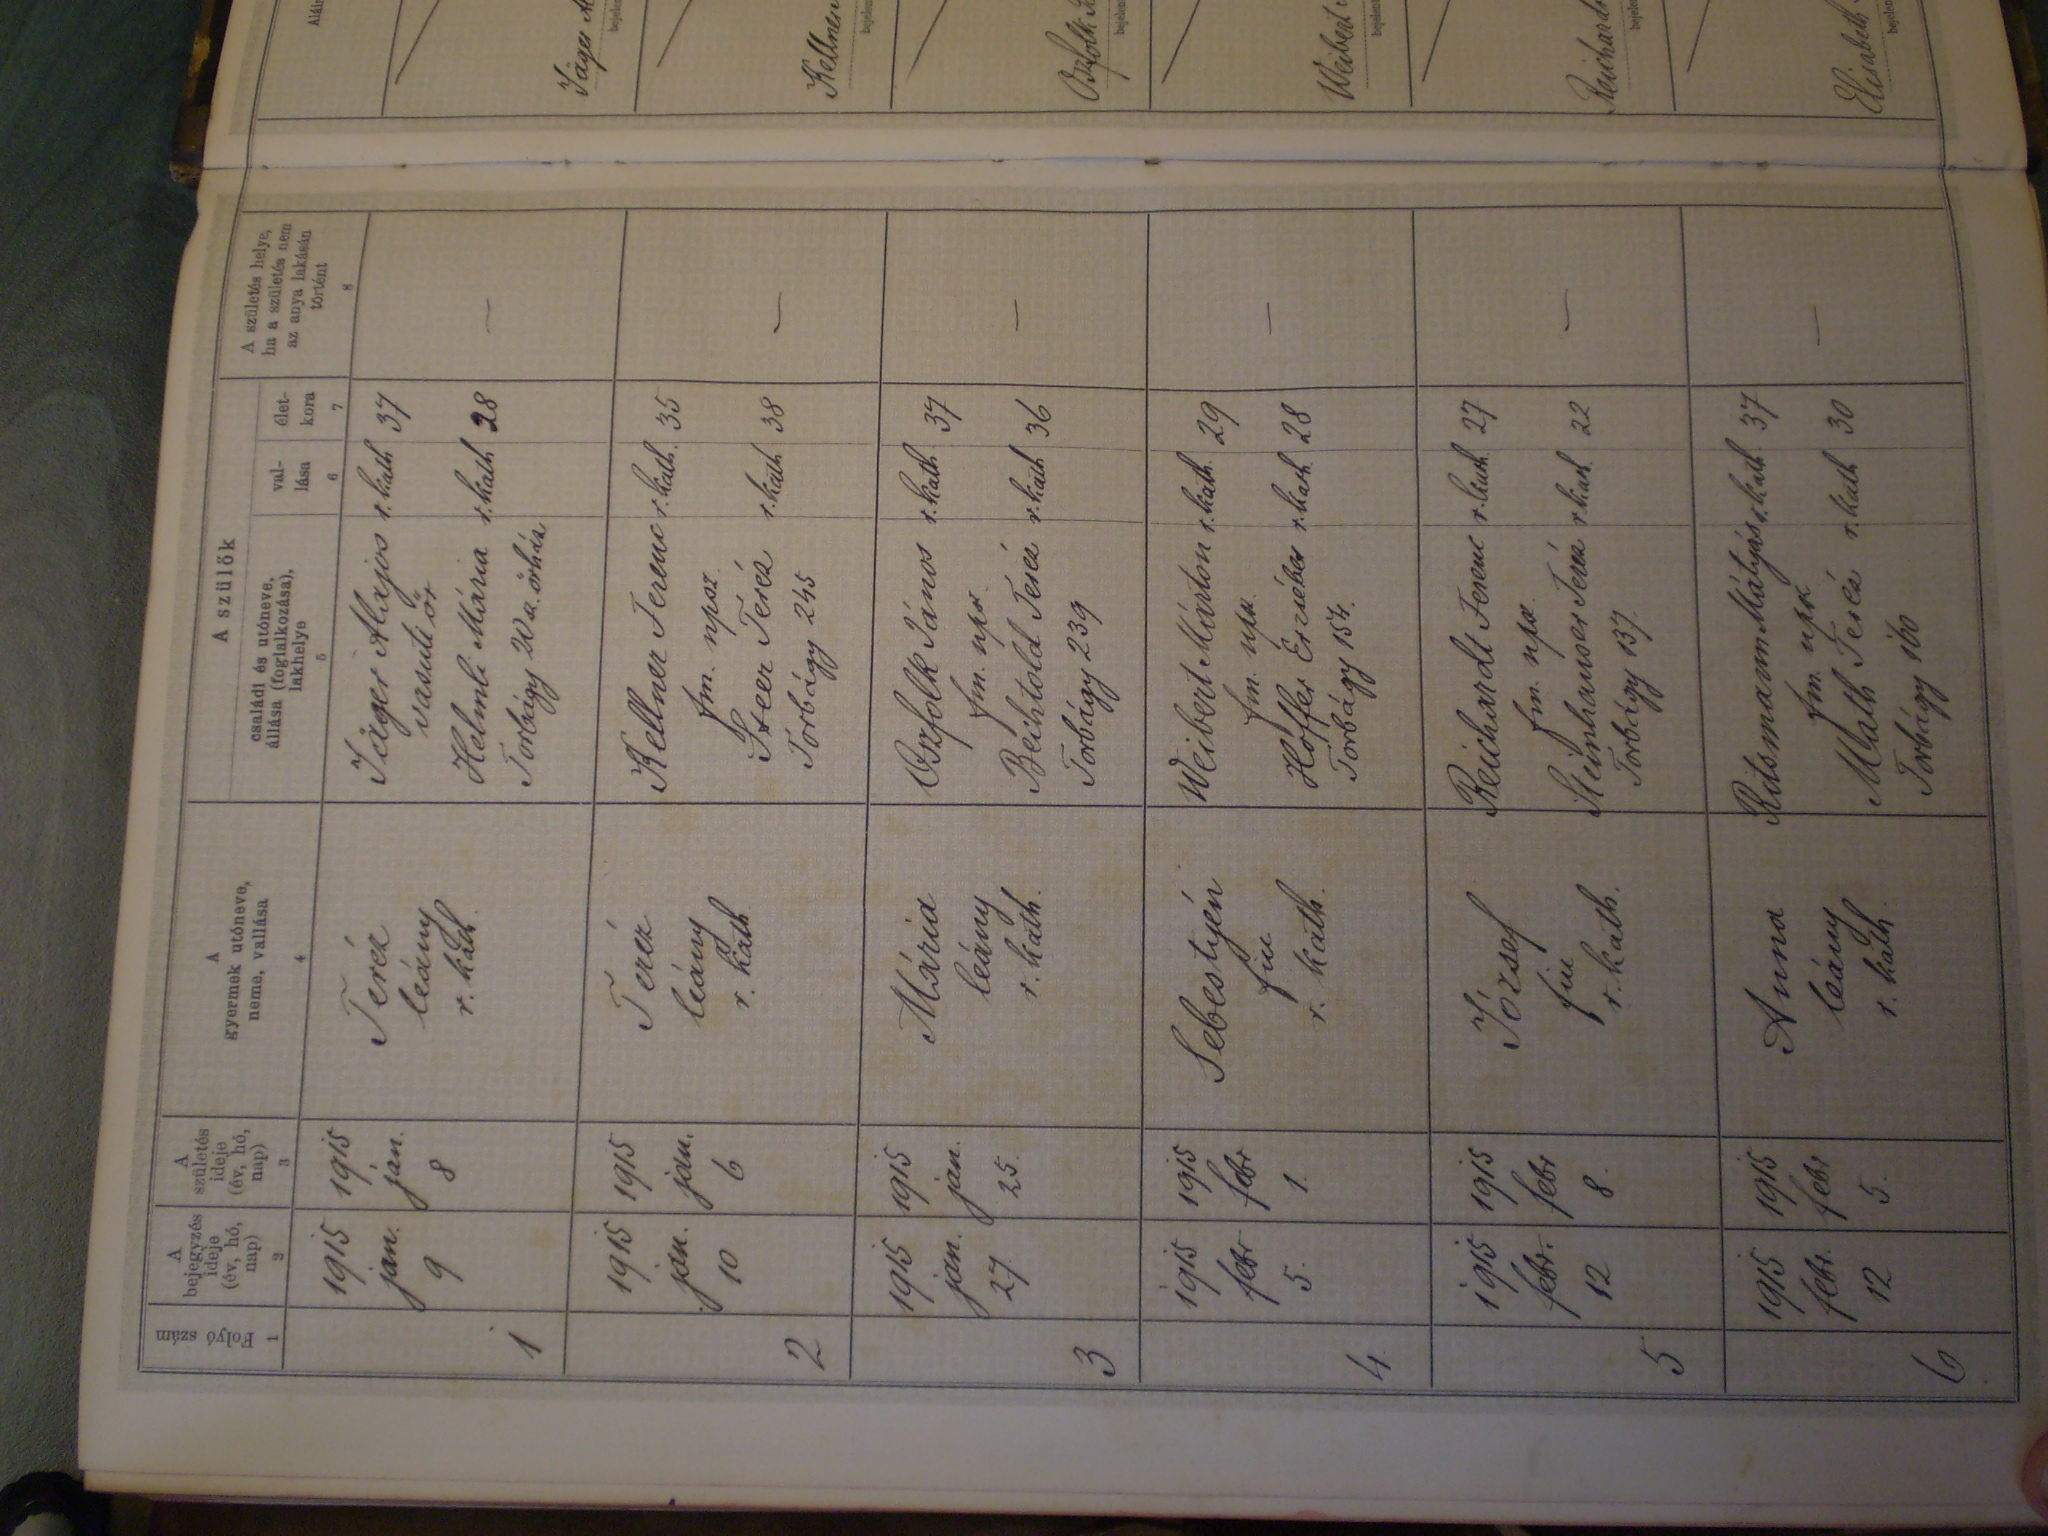 Folyó szám
1
A
bejegyzés
ideje
(év, hó,
nap)
2
A
születés
ideje
(év, hó,
nap)
3
A
gyermek utóneve,
neme, vallása
4
A szülők
családi és utóneve,
állása (foglalkozása),
lakhelye
5
val-
lása
6
élet-
kora
7
A születés helye,
ha a születés nem
az anya lakásán
történt
8
1
1915
jan.
9
1915
jan.
8
Teréz
leány
r. kath.
Jäger Alajos r. kath 37
vasuti őr
Helmli Mária r. kath 28
Torbágy 20 sz. őrház
—
2
1915
jan.
10
1915
jan.
6
Teréz
leány
r. kath
Kellner Ferenc r. kath. 35
fm. npsz.
Steer Teréz r. kath 38
Torbágy 245
—
3
1915
jan.
27.
1915
jan.
25.
Mária
leány
r. kath.
Oszfolk János r. kath. 37
fm. npsz.
Beihtold Teréz r. kath 36
Torbágy 239
—
4.
1915
febr
5.
1915
febr
1.
Sebestyén
fiu
r. kath.
Weibert Márton r. kath. 29
fm. nps.
Höffer Erzsébet r. kath. 28
Torbágy 154.
—
5
1915
febr.
12
1915
febr
8.
József
fiu
r. kath.
Reichardt Ferenc r. kath 27
fm. nps.
Steinhauser Teréz r. kath. 22
Torbágy 137.
—
6
1915
febr.
12
1915
febr
5.
Anna
leány
r. kath.
Ritsmann Mátyás r. kath 37
fm. nps.
Math Teréz r. kath 30
Torbágy 160
—
Jäger
Kellner
Oszfolk
Weibert
Reichardt
Elisabeth